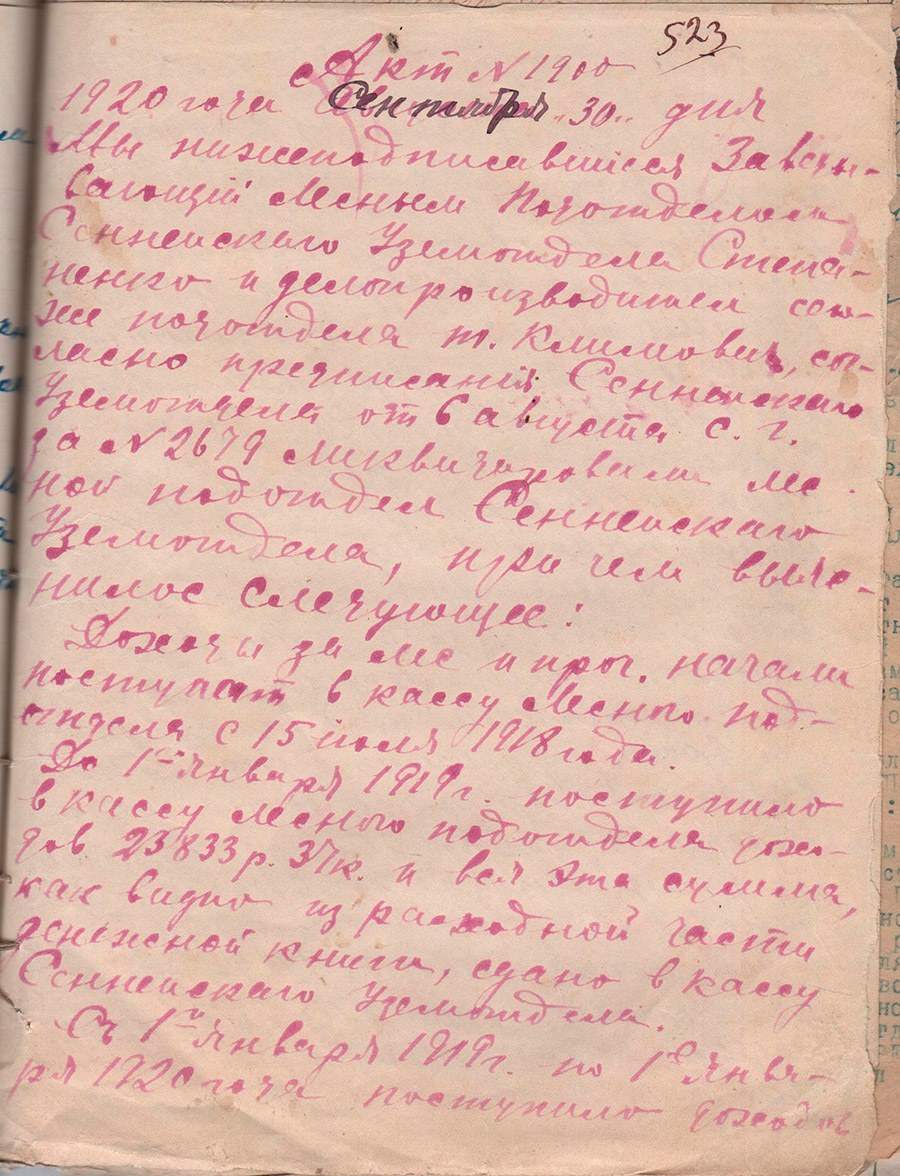 523
Акт N 1900
1920 года Сентября "30" дня
Мы нижеподписавшиеся Заведы-
вающий Лесным Подотделом
Сеннеиского Уземотдела Степа-
ненко и делопроизводител
же подотдела т. Климович, сог-
ласно предписания Сеннеиского
Уземотдела от 6 августа с. г.
за N 2679 ликвидировали лес
ной подотдел Сеннеиского
Уземотдела, при чем выяс-
нилос следующее:
Доходы за лес и проч. начали
поступат в кассу Лесного под-
отдела с 15 июля 1918 года.
До 1го Января 1919 г. поступило
в кассу Лесного подотдела дохо-
дов 23833 р. 37 к. и вся эта сумма,
как видно из расходной части
денежной книги, сдано в кассу
Сеннеиского Уземотдела.
Съ 1го Января 1919 г. по 1е Янва-
ря 1920 года поступило доходов